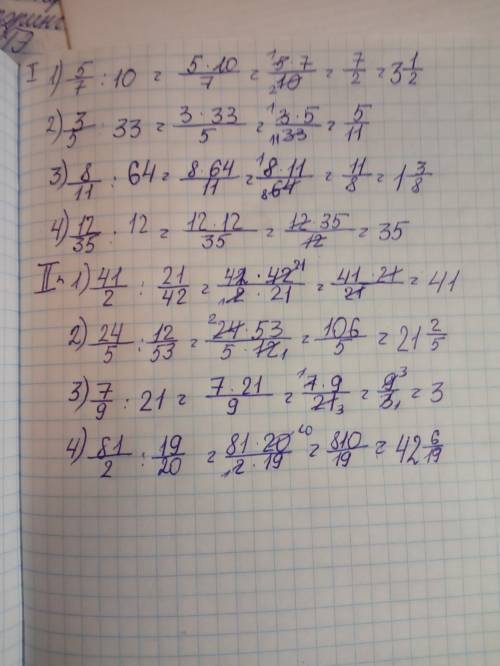 I 1) 5/7 : 10 = 5·10/7 = 5·7/10 = 7/2 = 3 1/2
2) 3/5 · 33 = 3·33/5 = 3·5/33 = 5/11
3) 8/11 : 64 = 8·64/11 = 8·11/64 = 11/8 = 1 3/8
4) 12/35 · 12 = 12·12/35 = 12·35/12 = 35
II 1) 41/2 : 21/42 = 42·42/2·21 = 41·21/21 = 41
2) 24/5 : 12/53 = 24·53/5·12 = 106/5 = 21 2/5
3) 7/9 : 21 = 7·21/9 = 7·9/21 = 9/3 = 3
4) 81/2 : 19/20 = 81·20/2·19 = 810/19 = 42 6/19